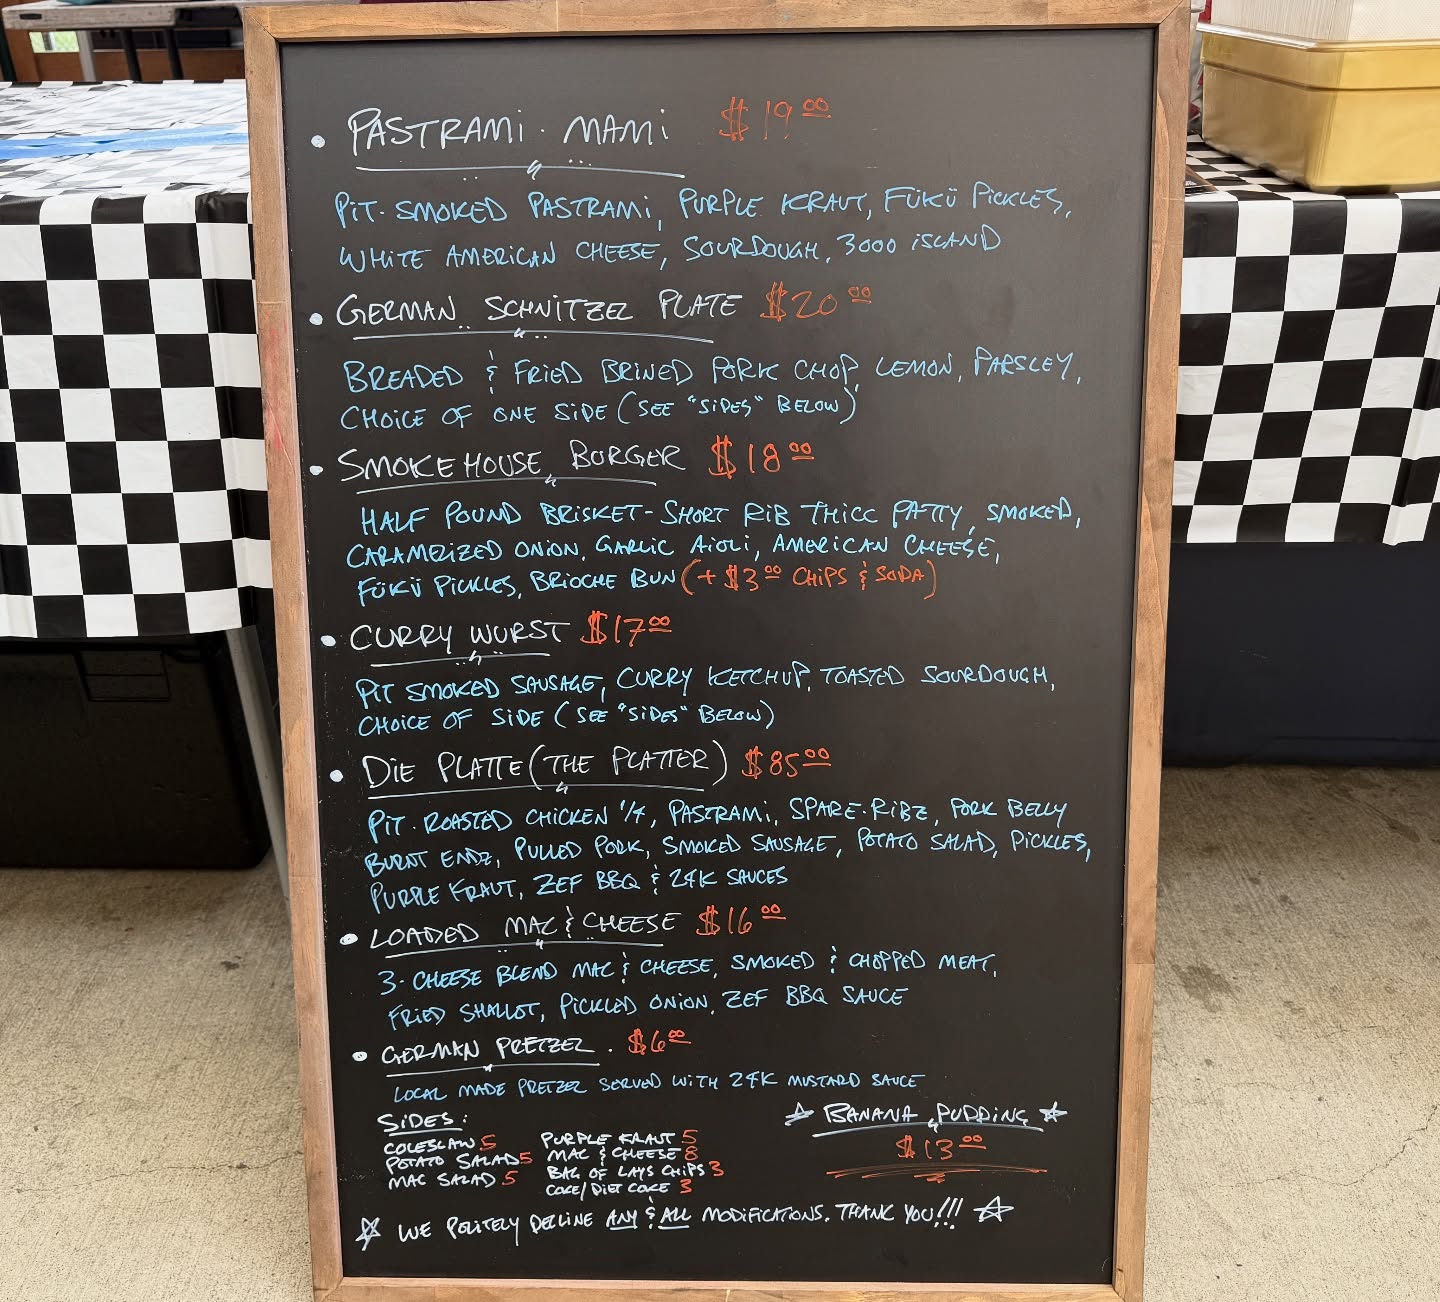 • PASTRAMi · MAMi $19.00
PiT·SMOKED PASTRAMi, PURPLE KRAUT, FÜKÜ PiCKLES,
WHiTE AMERiCAN CHEESE, SOURDOUGH, 3000 iSLAND
• GERMAN SCHNiTZEL PLATE $20.00
BREADED & FRiED BRiNED PORK CHOP, LEMON, PARSLEY,
CHOiCE OF ONE SiDE (SEE "SiDES" BELOW)
• SMOKEHOUSE BURGER $18.00
HALF POUND BRiSKET-SHORT RiB THiCC PATTY, SMOKED,
CARAMELiZED ONiON, GARLiC AiOLi, AMERiCAN CHEESE,
FÜKÜ PiCKLES, BRiOCHE BUN (+ $3.00 CHiPS & SODA)
• CURRY WURST $17.00
PiT SMOKED SAUSAGE, CURRY KETCHUP, TOASTED SOURDOUGH,
CHOiCE OF SiDE (SEE "SiDES" BELOW)
• DiE PLATTE (THE PLATTER) $85.00
PiT·ROASTED CHiCKEN 1/4, PASTRAMi, SPARE·RiBZ, PORK BELLY
BURNT ENDZ, PULLED PORK, SMOKED SAUSAGE, POTATO SALAD, PiCKLES,
PURPLE KRAUT, ZEF BBQ & 24K SAUCES
• LOADED MAC & CHEESE $16.00
3-CHEESE BLEND MAC & CHEESE, SMOKED & CHOPPED MEAT,
FRiED SHALLOT, PiCKLED ONiON, ZEF BBQ SAUCE
• GERMAN PRETZEL. $6.00
LOCAL MADE PRETZEL SERVED WiTH 24K MUSTARD SAUCE
SiDES:
COLESLAW 5
POTATO SALAD 5
MAC SALAD 5
PURPLE KRAUT 5
MAC & CHEESE 8
BAG OF LAYS CHiPS 3
COKE/DiET COKE 3
☆ BANANA PUDDiNG ☆
$13.00
☆ WE POLiTELY DECLiNE ANY & ALL MODiFiCATiONS. THANK YOU!!! ☆